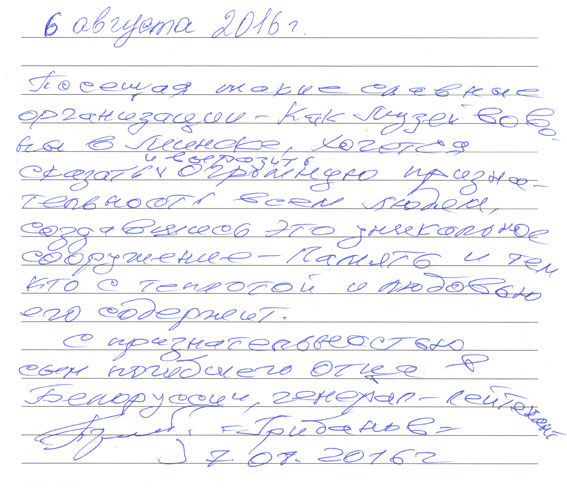 6 августа 2016 г.
Посещая такие славные
организации - как музей вов
в Минске, хочется
сказать и выразить огромную призна-
тельность всем людям,
создавшись это уникальное
сооружение - Память и тем
кто с теплотой и любовью
его содержит.
С признательностью
сын погибшего отца в
Белоруссии, генерал-лейтенант
=Грибанов=
2016г